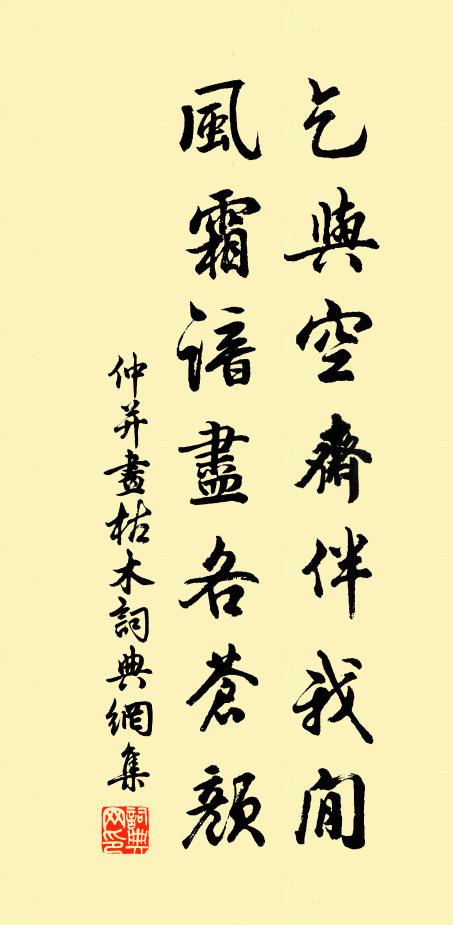 乞與空齋伴我閒
風霜諳盡各蒼顏
仲并畫枯木詞典網集
詞典網印